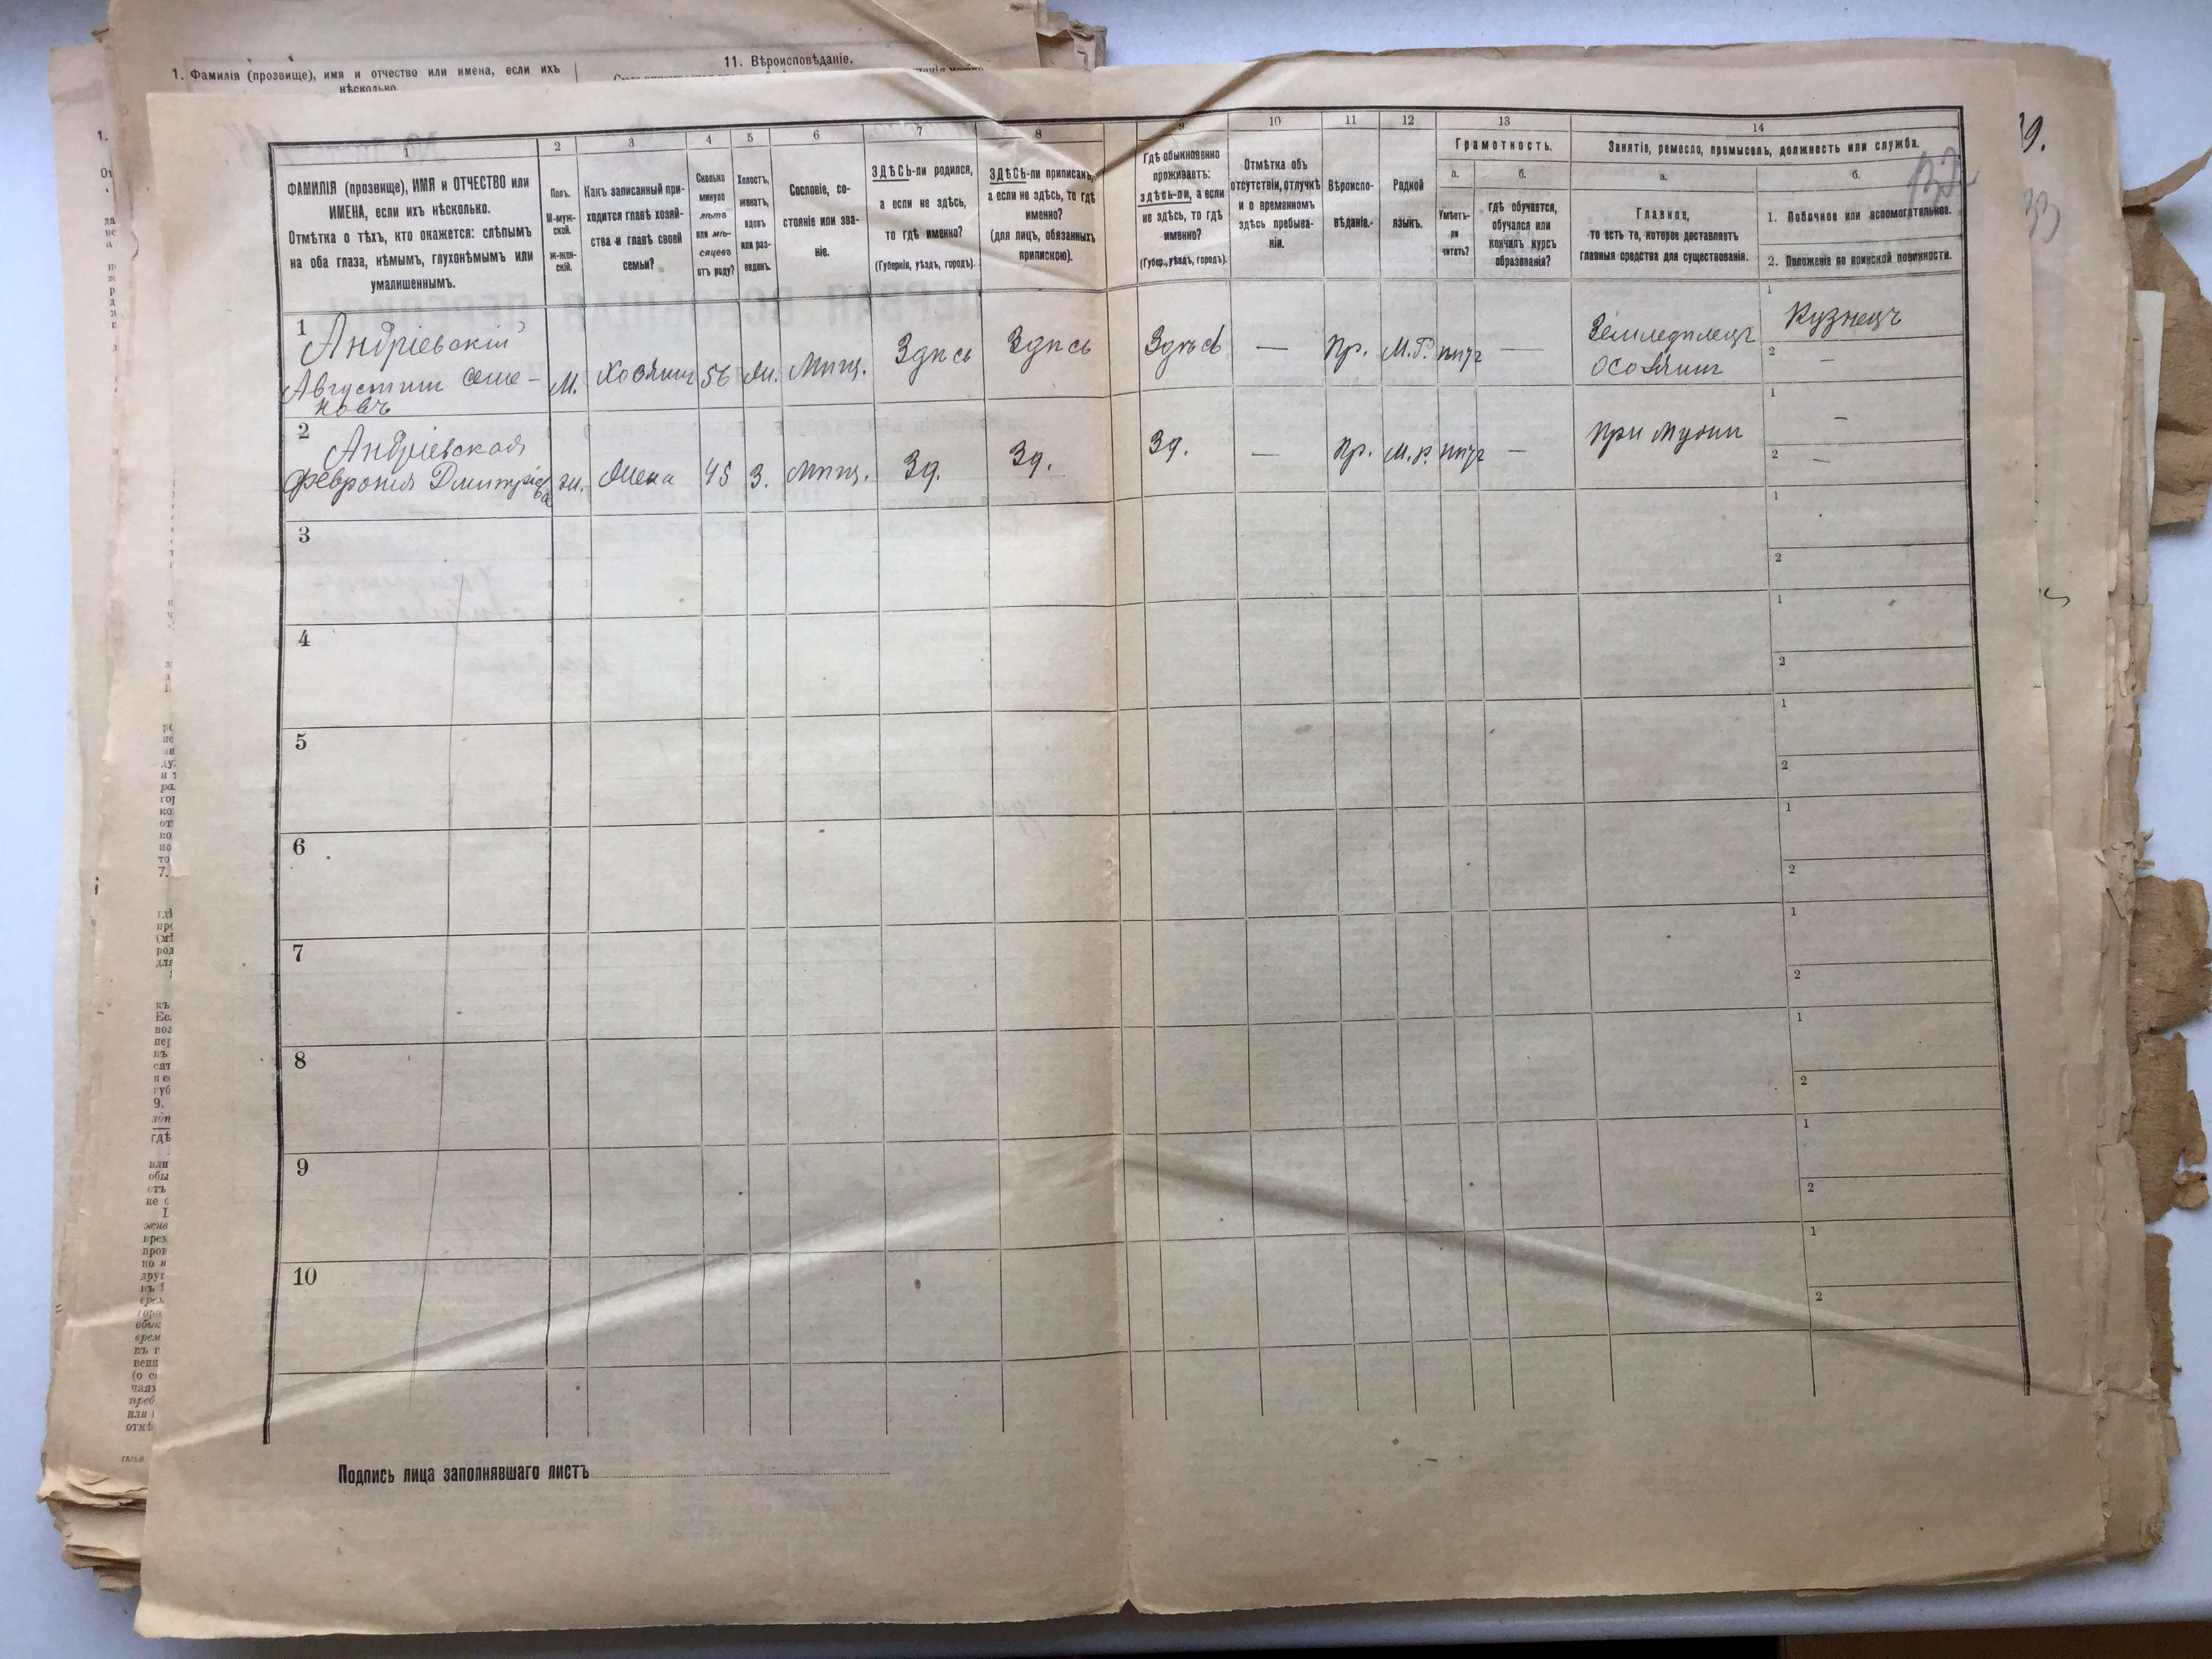 1. Фамилія (прозвище), имя и отчество или имена, если ихъ
нѣсколько.
11. Вѣроисповѣданіе.
1
ФАМИЛІЯ (прозвище), ИМЯ и ОТЧЕСТВО или
ИМЕНА, если ихъ нѣсколько.
Отмѣтка о тѣхъ, кто окажется: слѣпымъ
на оба глаза, нѣмымъ, глухонѣмымъ или
умалишеннымъ.
2
Полъ.
М-муж-
ской.
ж-жен-
скій.
3
Какъ записанный при-
ходится главѣ хозяй-
ства и главѣ своей
семьи?
4
Сколько
минуло
лѣтъ
или мѣ-
сяцевъ
отъ роду?
5
Холостъ,
женатъ,
вдовъ
или раз-
веденъ.
6
Сословіе, со-
стояніе или зва-
ніе.
7
ЗДѢСЬ-ли родился,
а если не здѣсь,
то гдѣ именно?
(Губернія, уѣздъ, городъ).
8
ЗДѢСЬ-ли приписанъ,
а если не здѣсь, то гдѣ
именно?
(для лицъ, обязанныхъ
припискою).
9
Гдѣ обыкновенно
проживаетъ:
здѣсь-ли, а если
не здѣсь, то гдѣ
именно?
(Губер., уѣздъ, городъ).
10
Отмѣтка объ
отсутствіи, отлучкѣ
и о временномъ
здѣсь пребыва-
ніи.
11
Вѣроиспо-
вѣданіе.
12
Родной
языкъ.
13
Грамотность.
а.
Умѣетъ-
ли
читать?
б.
гдѣ обучается,
обучался или
кончилъ курсъ
образованія?
14
Занятіе, ремесло, промыселъ, должность или служба.
а.
Главное,
то есть то, которое доставляетъ
главныя средства для существованія.
б.
1. Побочное или вспомогательное.
2. Положеніе по воинской повинности.
1
Андріевскій
Августин Семе-
новъ
М.
Хозяин
56
Жи.
Мѣщ.
Здѣсь
Здѣсь
Здѣсь
—
Пр.
М.Р.
нѣтъ
—
Земледѣлецъ
хозяин
1
Кузнецъ
2
—
2
Андріевская
Феврония Дмитріе
ва
ж.
Жена
45
З.
Мѣщ.
Зд.
Зд.
Зд.
—
Пр.
М.р.
нѣтъ
—
при мужѣ
1
—
2
—
3
1
2
4
1
2
5
1
2
6
1
2
7
1
2
8
1
2
9
1
2
10
1
2
Подпись лица заполнявшаго листъ